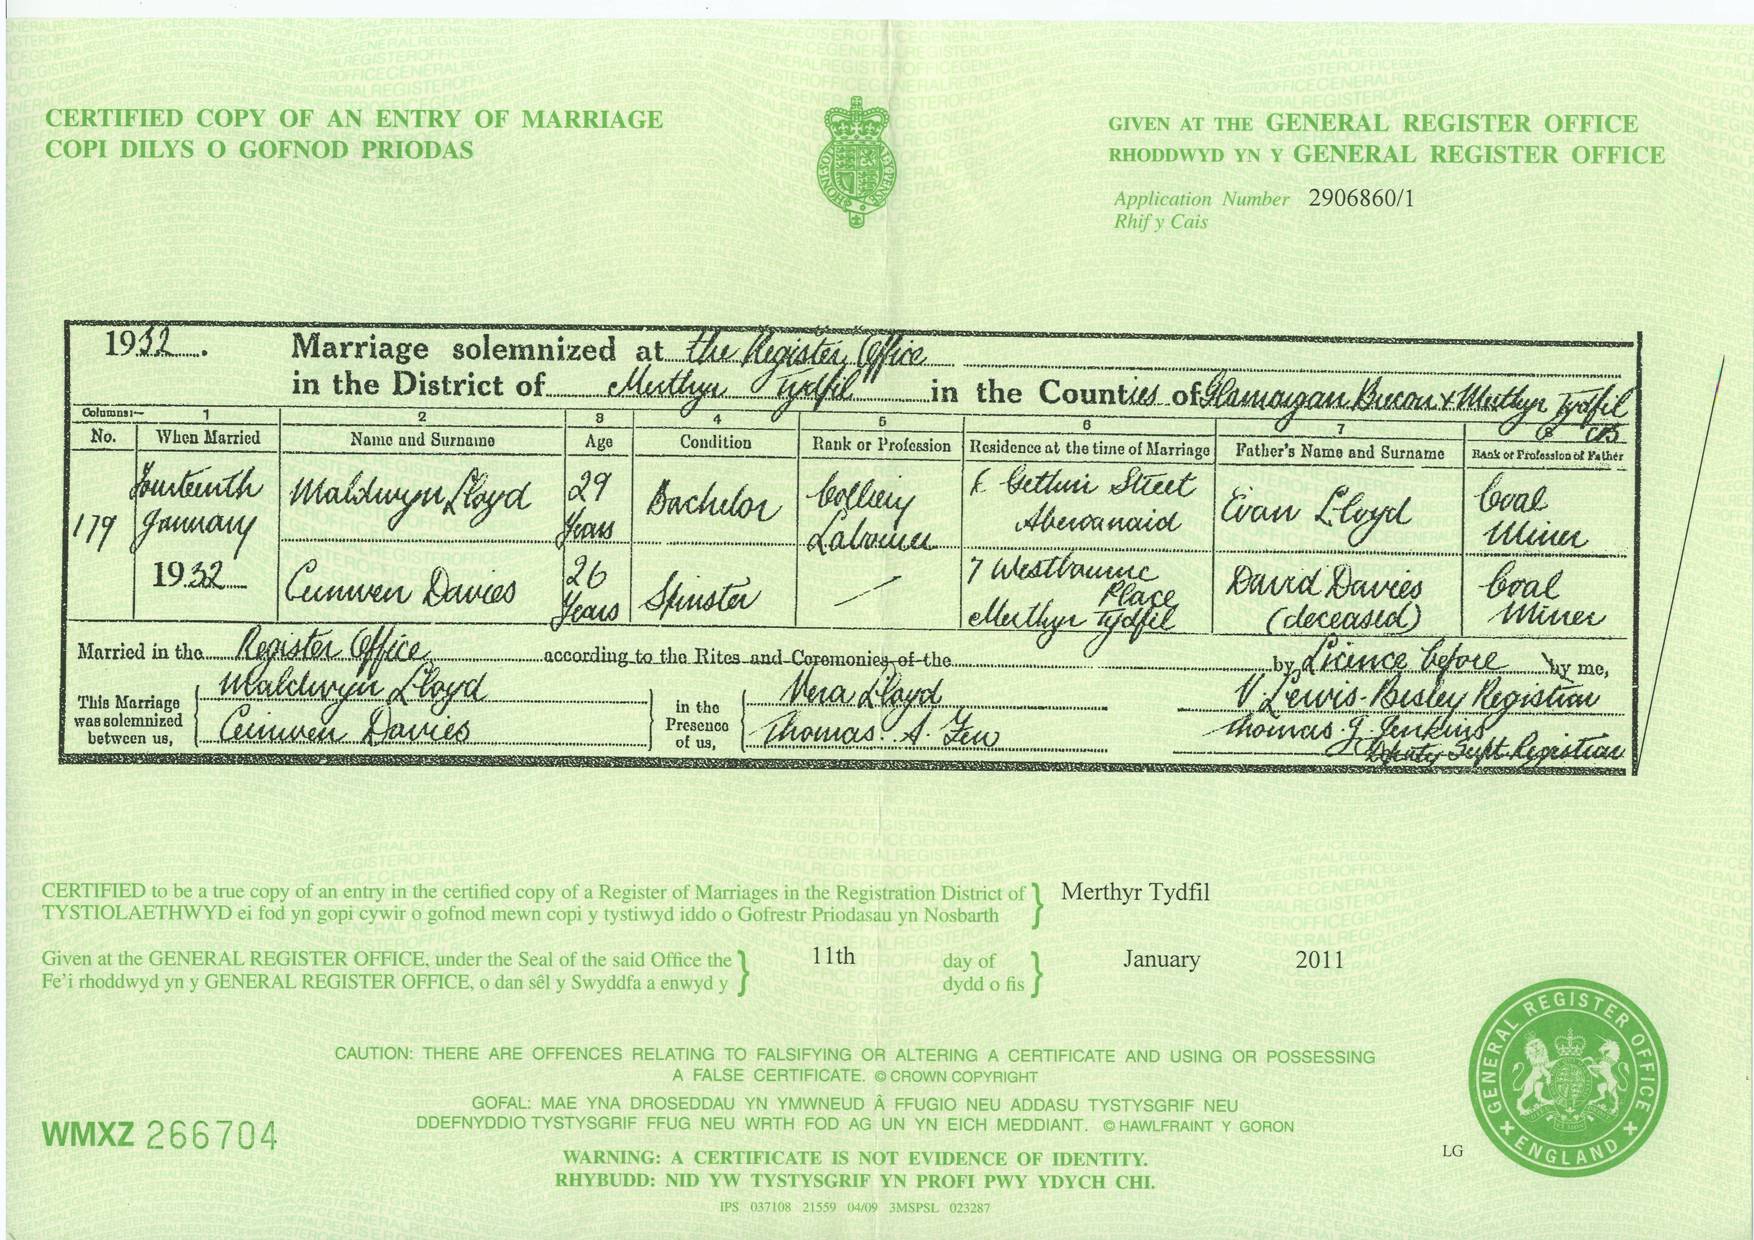 CERTIFIED COPY OF AN ENTRY OF MARRIAGE
COPI DILYS O GOFNOD PRIODAS
GIVEN AT THE GENERAL REGISTER OFFICE
RHODDWYD YN Y GENERAL REGISTER OFFICE
Application Number 2906860/1
Rhif y Cais
1932. Marriage solemnized at the Register Office
in the District of Merthyr Tydfil in the Counties of Glamorgan Brecon & Merthyr Tydfil
Columns:— 1 2 3 4 5 6 7 8 CMS
No. When Married Name and Surname Age Condition Rank or Profession Residence at the time of Marriage Father's Name and Surname Rank or Profession of Father
179 Fourteenth January 1932
Maldwyn Lloyd 29 Years Bachelor Colliery Labourer Gethin Street Abercanaid Evan Lloyd Coal Miner
Ceinwen Davies 26 Years Spinster — 7 Westbourne Place Merthyr Tydfil David Davies (deceased) Coal Miner
Married in the Register Office according to the Rites and Ceremonies of the by Licence before by me,
This Marriage was solemnized between us,
Maldwyn Lloyd
Ceinwen Davies
in the Presence of us,
Vera Lloyd
Thomas. A. Few
V. Lewis-Bisley Registrar
Thomas J. Jenkins
Deputy Supt. Registrar
CERTIFIED to be a true copy of an entry in the certified copy of a Register of Marriages in the Registration District of Merthyr Tydfil
TYSTIOLAETHWYD ei fod yn gopi cywir o gofnod mewn copi y tystiwyd iddo o Gofrestr Priodasau yn Nosbarth
Given at the GENERAL REGISTER OFFICE, under the Seal of the said Office the 11th day of January 2011
Fe'i rhoddwyd yn y GENERAL REGISTER OFFICE, o dan sêl y Swyddfa a enwyd y dydd o fis
CAUTION: THERE ARE OFFENCES RELATING TO FALSIFYING OR ALTERING A CERTIFICATE AND USING OR POSSESSING
A FALSE CERTIFICATE. © CROWN COPYRIGHT
GOFAL: MAE YNA DROSEDDAU YN YMWNEUD Â FFUGIO NEU ADDASU TYSTYSGRIF NEU
DDEFNYDDIO TYSTYSGRIF FFUG NEU WRTH FOD AG UN YN EICH MEDDIANT. © HAWLFRAINT Y GORON
WMXZ 266704
WARNING: A CERTIFICATE IS NOT EVIDENCE OF IDENTITY.
RHYBUDD: NID YW TYSTYSGRIF YN PROFI PWY YDYCH CHI.
IPS 037108 21559 04/09 3MSPSL 023287
LG
GENERAL REGISTER OFFICE
ENGLAND